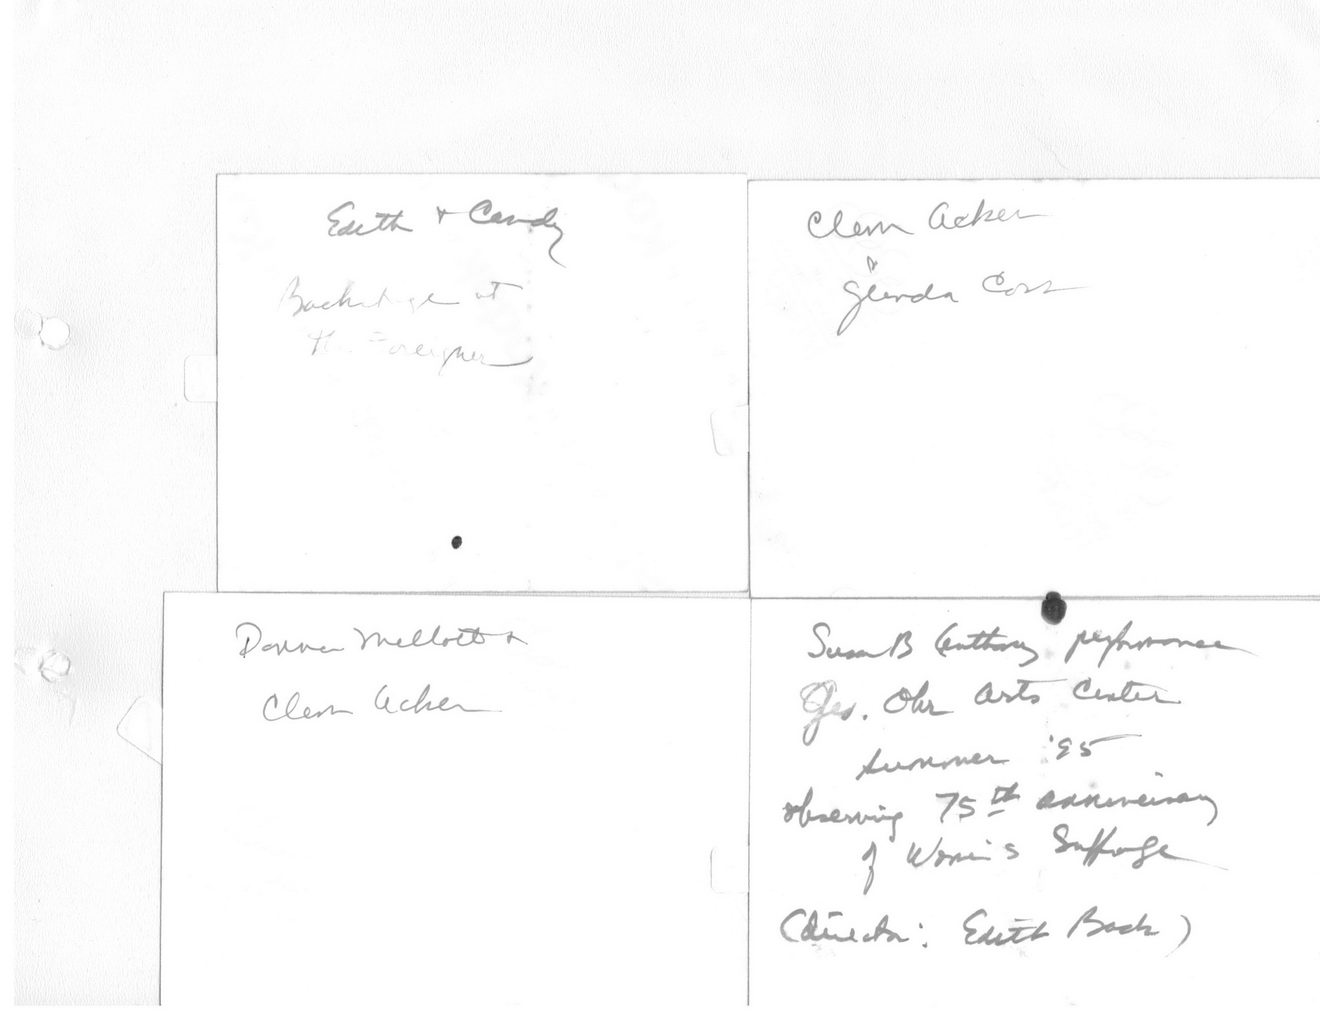 Edith & Candy
Backstage at
the Foreigner
Clem Acker
&
Glenda Cox
Donna Mellott &
Clem Acker
Susan B Anthony performance
Geo. Ohr Arts Center
Summer '95
observing 75th anniversary
of Women's Suffrage
(director: Edith Back)